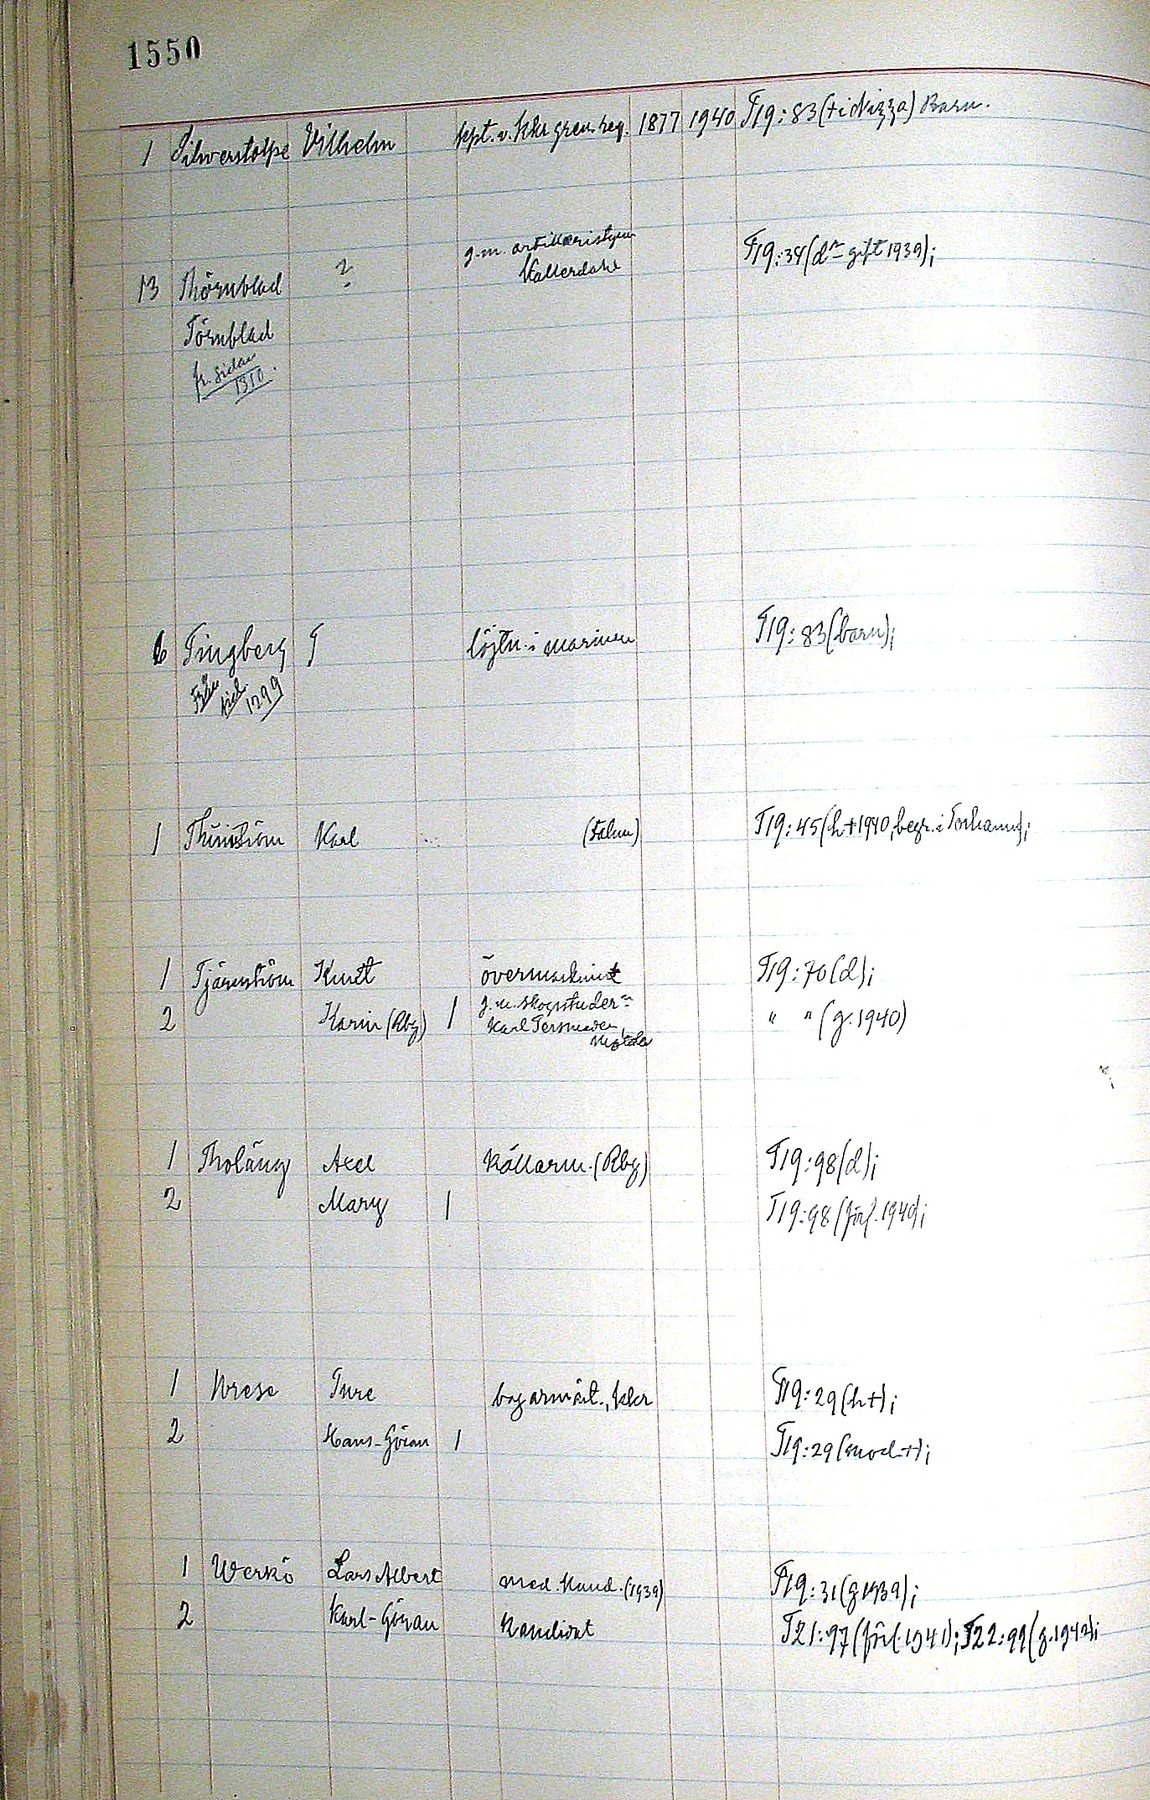 1550
1 Silverstolpe Vilhelm kpt. v. Kkr gren. reg. 1877 1940 T19:83 († i Nizza) Barn.
g.m. artilleristyrm
13 Thörnblad ? T19:34 (dr gift 1939);
Törnblad
fr. sidan
1310.
6 Tingberg T löjtn. i marinen T19:83 (barn);
Från
sid.
1299
1 Thunström Karl (Falun) T19:45 (h † 1940, begr. i Torhamn);
1 Tjärnström Knut övermaskinist T19:70 (d);
2 Karin (Rbg) 1 g.m. skogsstuder
Karl " " (g. 1940)
Motala
1 Tholäng Axel källarm. (Rbg) T19:98 (d);
2 Mary 1 T19:98 (förl. 1940);
1 Wrese Ture bagarmäst., Kkr T19:29 (h †);
2 Hans-Göran 1 T19:29 (mod. †);
1 Werkö Lars Albert med. kand. (1939) T19:31 (g 1939);
2 Karl-Göran kandidat T21:97 (förl. 1941); T22:99 (g. 1942);